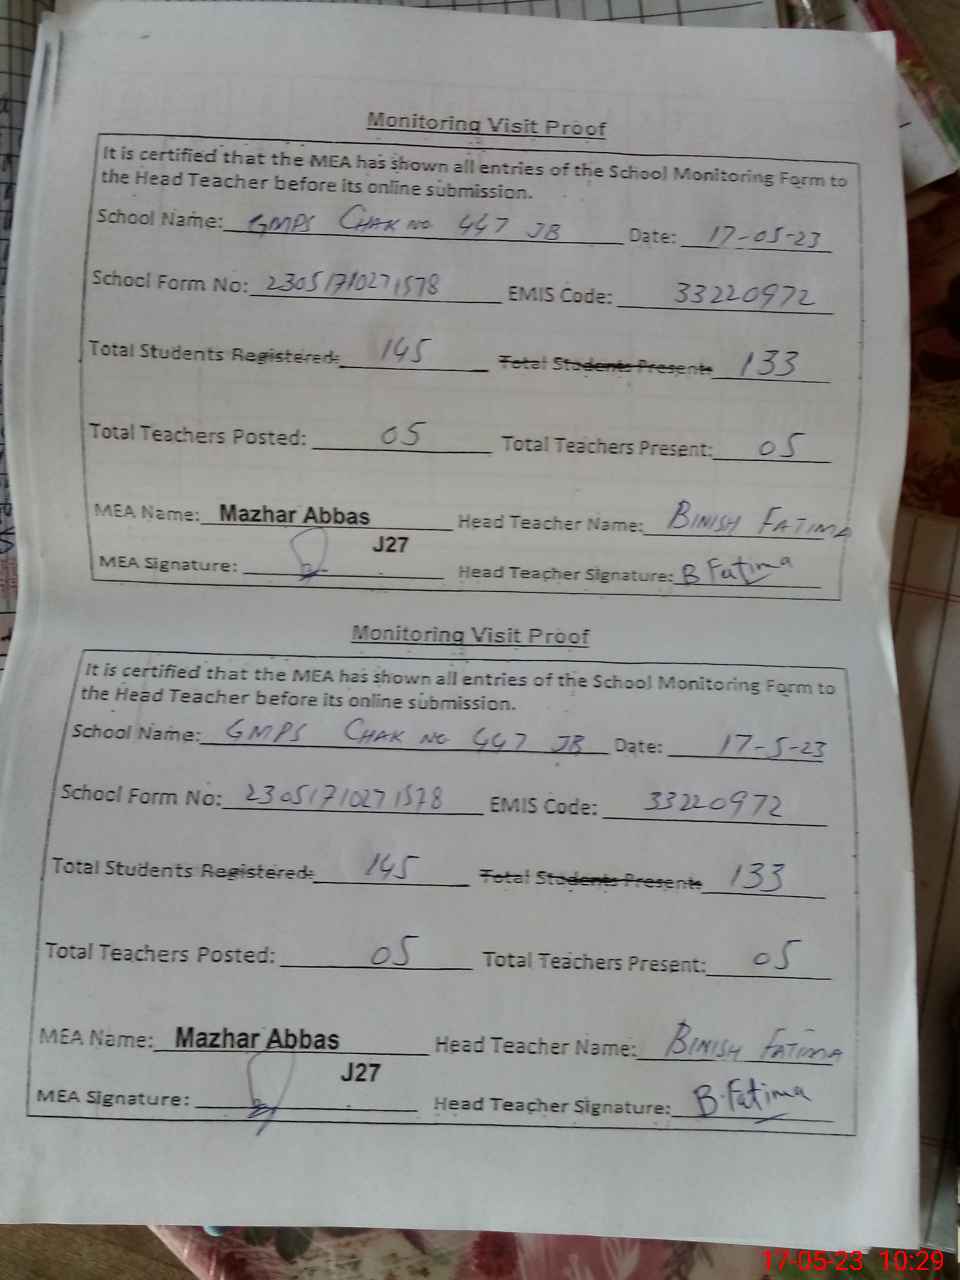 Monitoring Visit Proof
It is certified that the MEA has shown all entries of the School Monitoring Form to
the Head Teacher before its online submission.
School Name: GMPS CHAK NO 447 JB Date: 17-05-23
School Form No: 23051710271578 EMIS Code: 33220972
Total Students Registered: 145 Total Students Present: 133
Total Teachers Posted: 05 Total Teachers Present: 05
MEA Name: Mazhar Abbas Head Teacher Name: BINISH FATIMA
J27
MEA Signature: Head Teacher Signature: B Fatima
Monitoring Visit Proof
It is certified that the MEA has shown all entries of the School Monitoring Form to
the Head Teacher before its online submission.
School Name: GMPS CHAK NO 447 JB Date: 17-5-23
School Form No: 23051710271578 EMIS Code: 33220972
Total Students Registered: 145 Total Students Present: 133
Total Teachers Posted: 05 Total Teachers Present: 05
MEA Name: Mazhar Abbas Head Teacher Name: BINISH FATIMA
J27
MEA Signature: Head Teacher Signature: B.Fatima
17-05-23 10:29